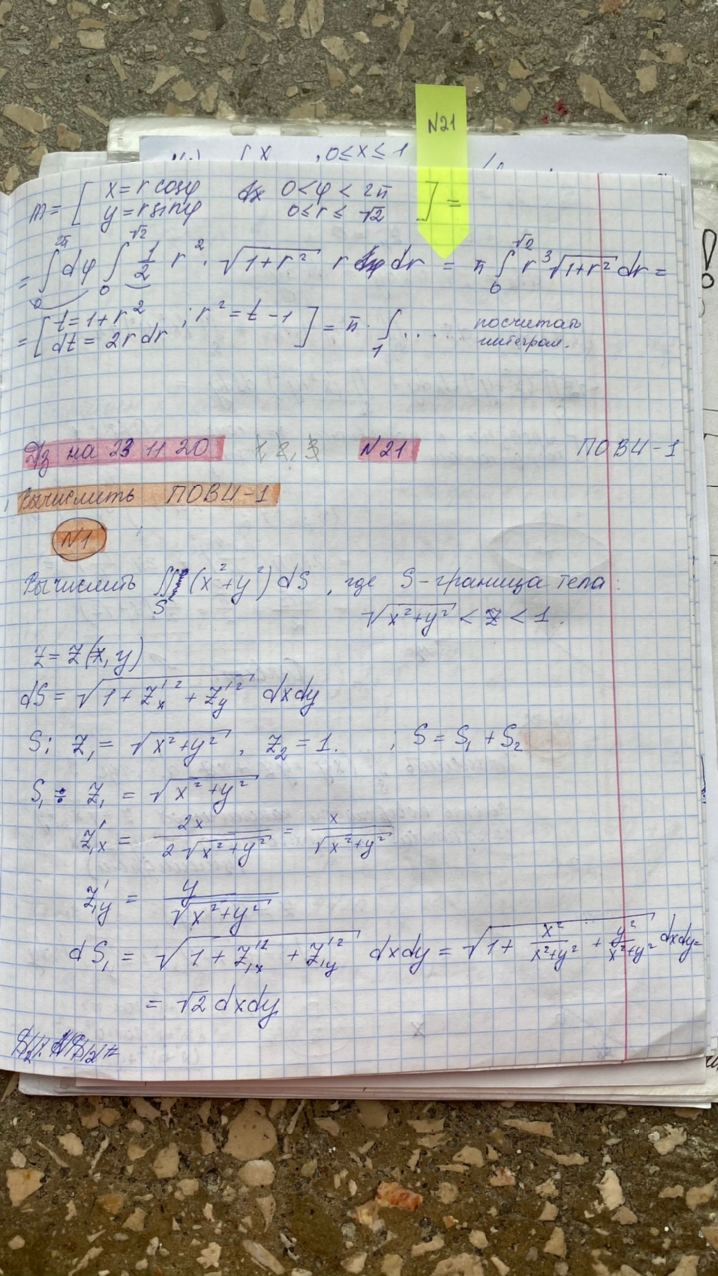 N21
{ x , 0≤x≤1
m = [ x = r cosφ 0<φ<2π
y = r sinφ 0≤r≤√2 ] =
= ∫₀^2π dφ ∫₀^√2 1/2 r² · √(1+r²) r dr = π ∫₀^√2 r³√(1+r²) dr =
= [ t = 1+r² ; r² = t-1
dt = 2r dr ] = π · ∫₁ ..... посчитать
интеграл.
Дз на 23 11 20 1, 2, 3 N21 ПОВИ-1
Вычислить ПОВИ-1
N1
Вычислить ∬_S (x²+y²) dS, где S-граница тела:
√(x²+y²) < z < 1.
z = z(x, y)
dS = √(1 + z'ₓ² + z'_y²) dxdy
S: z₁ = √(x²+y²), z₂ = 1. ; S = S₁ + S₂
S₁: z₁ = √(x²+y²)
z'₁ₓ = 2x / 2√(x²+y²) = x / √(x²+y²)
z'₁y = y / √(x²+y²)
dS₁ = √(1 + z'₁ₓ² + z'₁y²) dxdy = √(1 + x²/(x²+y²) + y²/(x²+y²)) dxdy =
= √2 dxdy